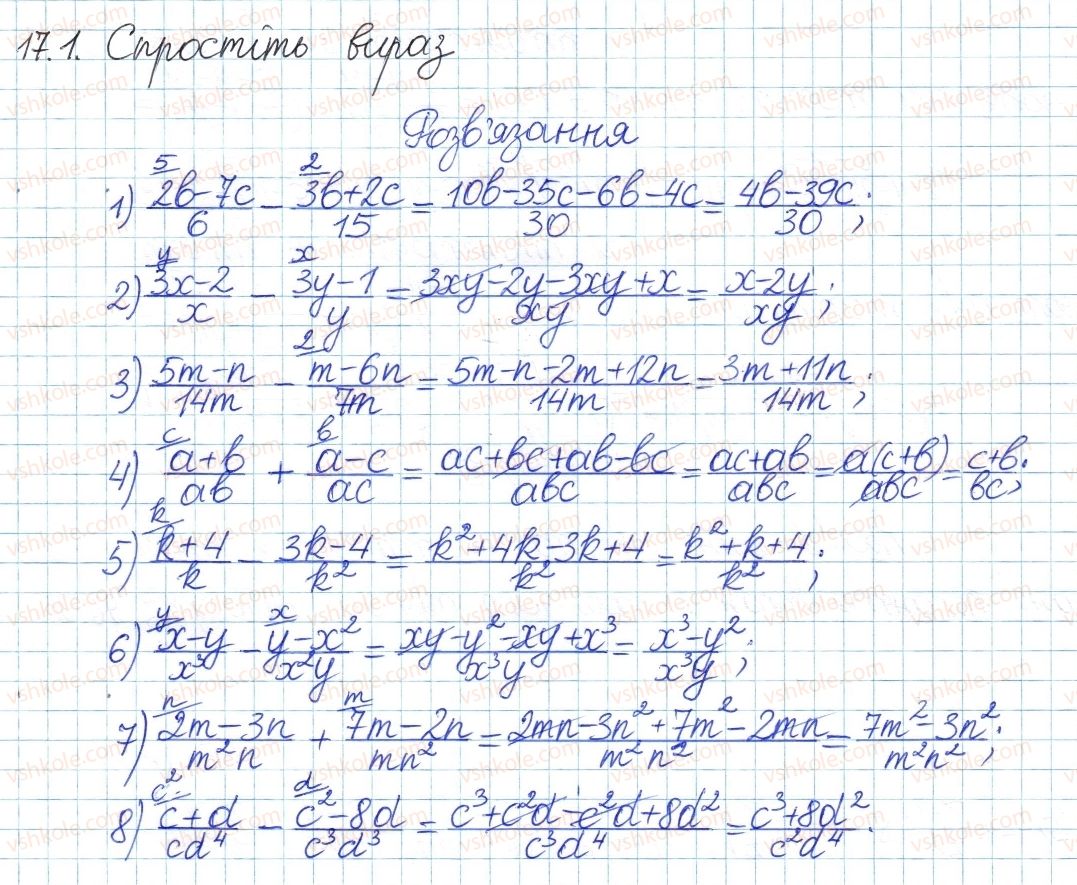 17.1. Спростіть вираз
Розв'язання
1) (2b-7c)/6 ⁵ - (3b+2c)/15 ² = (10b-35c-6b-4c)/30 = (4b-39c)/30;
2) (3x-2)/x ʸ - (3y-1)/y ˣ = (3xy-2y-3xy+x)/xy = (x-2y)/xy;
3) (5m-n)/14m - (m-6n)/7m ² = (5m-n-2m+12n)/14m = (3m+11n)/14m;
4) (a+b)/ab ᶜ + (a-c)/ac ᵇ = (ac+bc+ab-bc)/abc = (ac+ab)/abc = a(c+b)/abc = (c+b)/bc;
5) (k+4)/k ᵏ - (3k-4)/k² = (k²+4k-3k+4)/k² = (k²+k+4)/k²;
6) (x-y)/x³ ʸ - (y-x²)/x²y ˣ = (xy-y²-xy+x³)/x³y = (x³-y²)/x³y;
7) (2m-3n)/m²n ⁿ + (7m-2n)/mn² ᵐ = (2mn-3n²+7m²-2mn)/m²n² = (7m²-3n²)/m²n²;
8) (c+d)/cd⁴ ᶜ² - (c²-8d)/c³d³ ᵈ = (c³+c²d-c²d+8d²)/c³d⁴ = (c³+8d²)/c²d⁴.